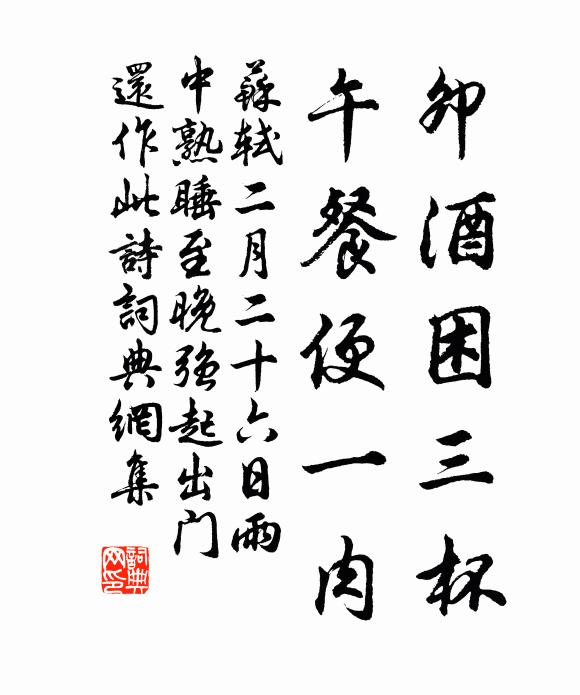 卯酒困三杯
午餐便一肉
蘇軾二月二十六日雨
中熟睡至晚強起出门
還作此詩詞典網集
詞典
网印